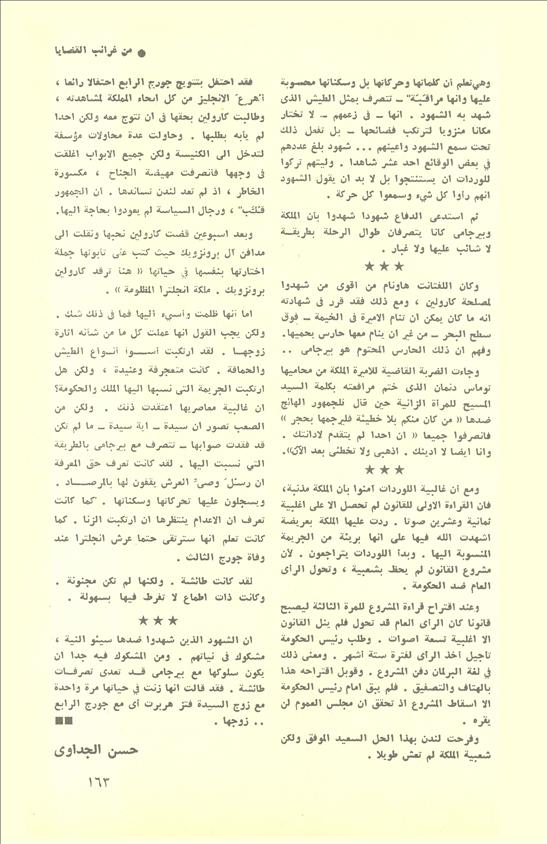 ● من غرائب القضايا
وهي تعلم أن كلماتها وحركاتها بل وسكناتها محسوبة
عليها وانها مراقبَة" ــ تتصرف بمثل الطيش الذى
شهد به الشهود . انها ــ فى زعمهم ــ لا تختار
مكانا منزويا لترتكب فضائحها ــ بل تفعل ذلك
تحت سمع الشهود واعينهم ... شهود بلغ عددهم
في بعض الوقائع احد عشر شاهدا . وليتهم تركوا
للوردات ان يستنتجوا بل لا بد ان يقول الشهود
انهم رأوا كل شيء وسمعوا كل حركة .
ثم استدعى الدفاع شهودا شهدوا بأن الملكة
وبيرجامى كانا يتصرفان طوال الرحلة بطريقة
لا شائب عليها ولا غبار .
★ ★ ★
وكان اللفتانت هاونام من اقوى من شهدوا
لمصلحة كارولين ، ومع ذلك فقد قرر فى شهادته
انه ما كان يمكن ان تنام الاميرة فى الخيمة ــ فوق
سطح البحر ــ من غير ان ينام معها حارس يحميها.
وفهم ان ذلك الحارس المحتوم هو بيرجامى ..
وجاءت الضربة القاضية للاميرة الملكة من محاميها
توماس دنمان الذى ختم مرافعته بكلمة السيد
المسيح للمرأة الزانية حين قال للجمهور الهائج
ضدها « من كان منكم بلا خطيئة فليرجمها بحجر »
فانصرفوا جميعا « ان احدا لم يتقدم لادانتك .
وانا ايضا لا ادينك . اذهبى ولا تخطئى بعد الآن».
★ ★ ★
ومع أن غالبية اللوردات آمنوا بأن الملكة مذنبة،
فان القراءة الاولى للقانون لم تحصل الا على اغلبية
ثمانية وعشرين صوتا . ردت عليها الملكة بعريضة
اشهدت الله فيها على انها بريئة من الجريمة
المنسوبة اليها . وبدأ اللوردات يتراجعون . لأن
مشروع القانون لم يحظ بشعبية ، وتحول الرأى
العام ضد الحكومة .
وعند اقتراح قراءة المشروع للمرة الثالثة ليصبح
قانونا كان الرأى العام قد تحول فلم ينل القانون
الا اغلبية تسعة اصوات . وطلب رئيس الحكومة
تأجيل أخذ الرأى لفترة ستة أشهر . ومعنى ذلك
فى لغة البرلمان دفن المشروع . وقوبل اقتراحه هذا
بالهتاف والتصفيق . فلم يبق امام رئيس الحكومة
الا اسقاط المشروع اذ تحقق ان مجلس العموم لن
يقره .
وفرحت لندن بهذا الحل السعيد الموفق ولكن
شعبية الملكة لم تعش طويلا .
فقد احتفل بتتويج جورج الرابع احتفالا رائعا ،
أهرع الانجليز من كل انحاء المملكة لمشاهدته ،
وطالبت كارولين بحقها فى ان تتوج معه ولكن احدا
لم يأبه بطلبها . وحاولت عدة محاولات مؤسفة
لتدخل الى الكنيسة ولكن جميع الابواب اغلقت
فى وجهها فانصرفت مهيضة الجناح ، مكسورة
الخاطر ، اذ لم تعد لندن تساندها . ان الجمهور
قلَّب" ، ورجال السياسة لم يعودوا بحاجة اليها.
وبعد اسبوعين قضت كارولين نحبها ونقلت الى
مدافن آل برونزويك حيث كتب على تابوتها جملة
اختارتها بنفسها فى حياتها « هنا ترقد كارولين
برونزويك . ملكة انجلترا المظلومة » .
اما انها ظلمت وأسيء اليها فما فى ذلك شك .
ولكن يجب القول انها عملت كل ما من شأنه اثارة
زوجها . لقد ارتكبت أسوأ أنواع الطيش
والحماقة . كانت متعجرفة وعنيدة ، ولكن هل
ارتكبت الجريمة التى نسبها اليها الملك والحكومة؟
ان غالبية معاصريها اعتقدت ذلك . ولكن من
الصعب تصور ان سيدة ــ اية سيدة ــ ما لم تكن
قد فقدت صوابها ــ تتصرف مع بيرجامى بالطريقة
التى نسبت اليها . لقد كانت تعرف حق المعرفة
ان رسل وصىّ العرش يقفون لها بالمرصاد .
ويسجلون عليها تحركاتها وسكناتها . كما كانت
تعرف ان الاعدام ينتظرها ان ارتكبت الزنا . كما
كانت تعلم انها سترتقى حتما عرش انجلترا عند
وفاة جورج الثالث .
لقد كانت طائشة . ولكنها لم تكن مجنونة .
وكانت ذات اطماع لا تفرط فيها بسهولة .
★ ★ ★
ان الشهود الذين شهدوا ضدها سيئو النية ،
مشكوك فى نياتهم . ومن المشكوك فيه جدا ان
يكون سلوكها مع بيرجامى قد تعدى تصرفات
طائشة . فقد قالت انها زنت في حياتها مرة واحدة
مع زوج السيدة فتز هربرت أى مع جورج الرابع
.. زوجها . ■■
حسن الجداوى
١٦٣